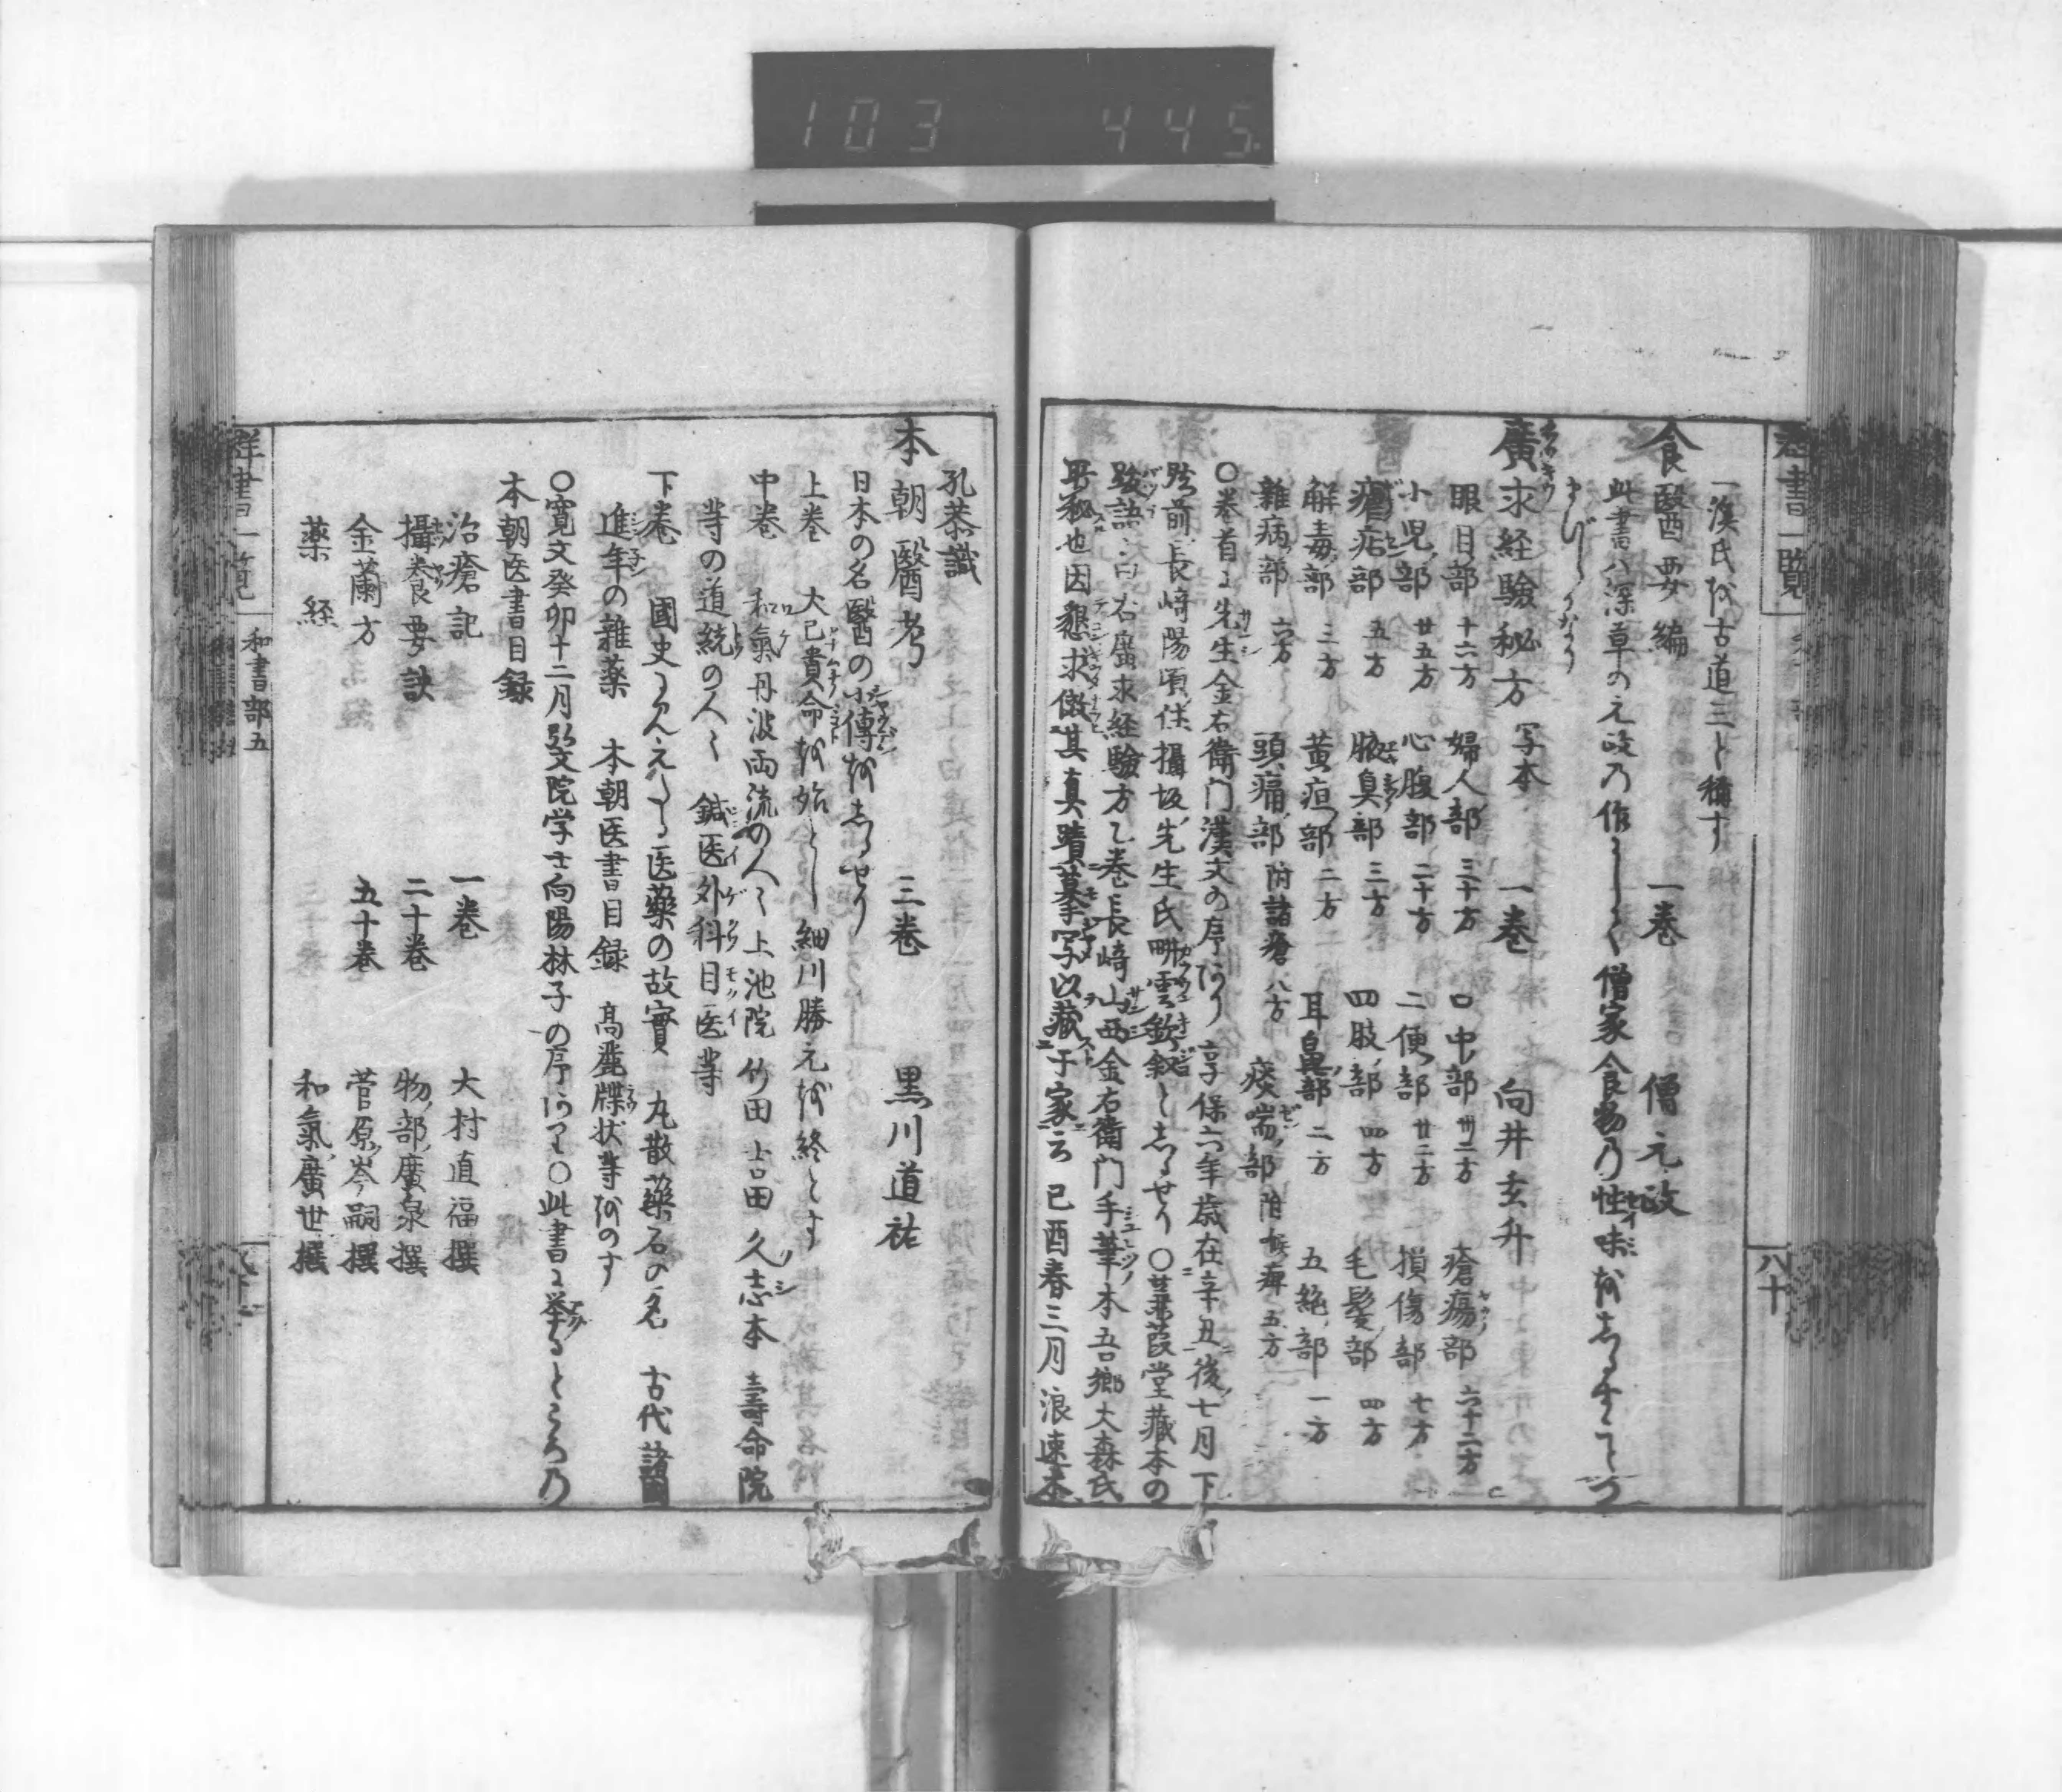 103 445.
群書一覧
八十
一渓氏を古道三と稱す
食醫要編 一巻 僧元政
此書ハ深草の元政の作にして僧家食物の性味をしるすこと
つまびらかなり
廣求経驗秘方 写本 一巻 向井玄升
眼目部 十六方 婦人部 三十方 口中部 卅二方 瘡瘍部 六十二方
小児部 廿五方 心腹部 二十方 二便部 廿二方 損傷部 七方
瘧疟部 五方 腋臭部 三方 四肢部 四方 毛髪部 四方
解毒部 三方 黄疸部 二方 耳鼻部 二方 五絶部 一方
雜病部 六方 頭痛部 附諸瘡 八方 痰喘部 附喉痺 五方
○巻首に先生金右衛門漢文の序あり 享保六年歳在辛丑後七月下
於前長崎陽頃住攝坂先生氏畊雲欽叙としるせり ○蒹葭堂藏本の
跋語ニ曰右廣求経驗方乙巻長崎山西金右衛門手筆本吾郷大森氏
所秘也因懇求倣其真蹟摹写以藏于家云 已酉春三月 浪速木
孔恭識
本朝醫考 三巻 黒川道祐
日本の名醫の小傳をしるせり
上巻 大己貴命を始とし 細川勝元を終とす
中巻 和氣丹波両流の人々 上池院 竹田 吉田 久志本 壽命院
等の道統の人々 鍼医外科目医等
下巻 國史に見えたる医藥の故實 丸散藥石の名 古代諸國
進年の雜薬 本朝医書目録 高麗牒状等をのす
○寛文癸卯十二月弘文院学士向陽林子の序あり○此書に挙るところの
本朝医書目録
治瘡記 一巻 大村直福撰
攝養要訣 二十巻 物部廣泉撰
金蘭方 五十巻 菅原岑嗣撰
薬経 和氣廣世撰
群書一覧
和書部五